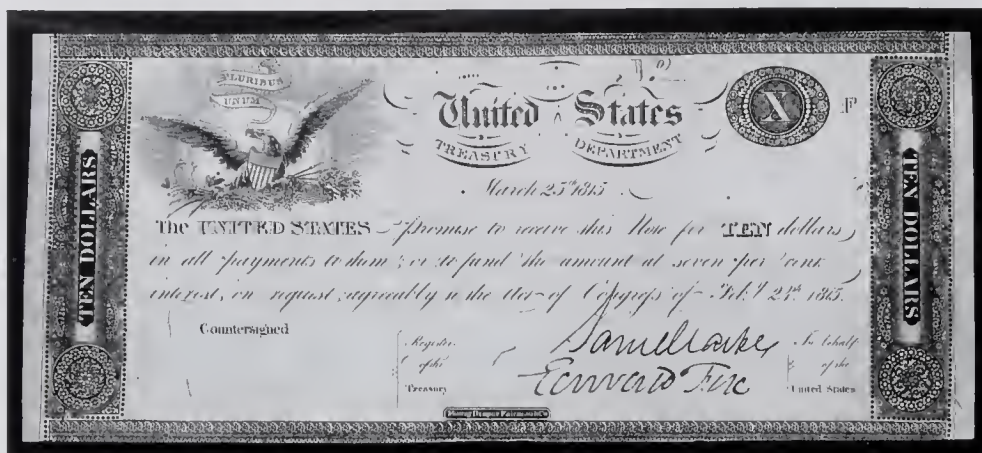 PLURIBUS
UNUM
United States
TREASURY DEPARTMENT
X
TEN DOLLARS
TEN DOLLARS
March 25th 1815
The UNITED STATES Promise to receive this Note for TEN dollars
in all payments to them; or to fund the amount at seven per cent
interest, on request, agreeably to the Act of Congress of Feby 24th 1815.
Countersigned
Register
of the
Treasury
Saml Clarke
Edward Fox
In behalf
of the
United States
Murray Draper Fairman & Co